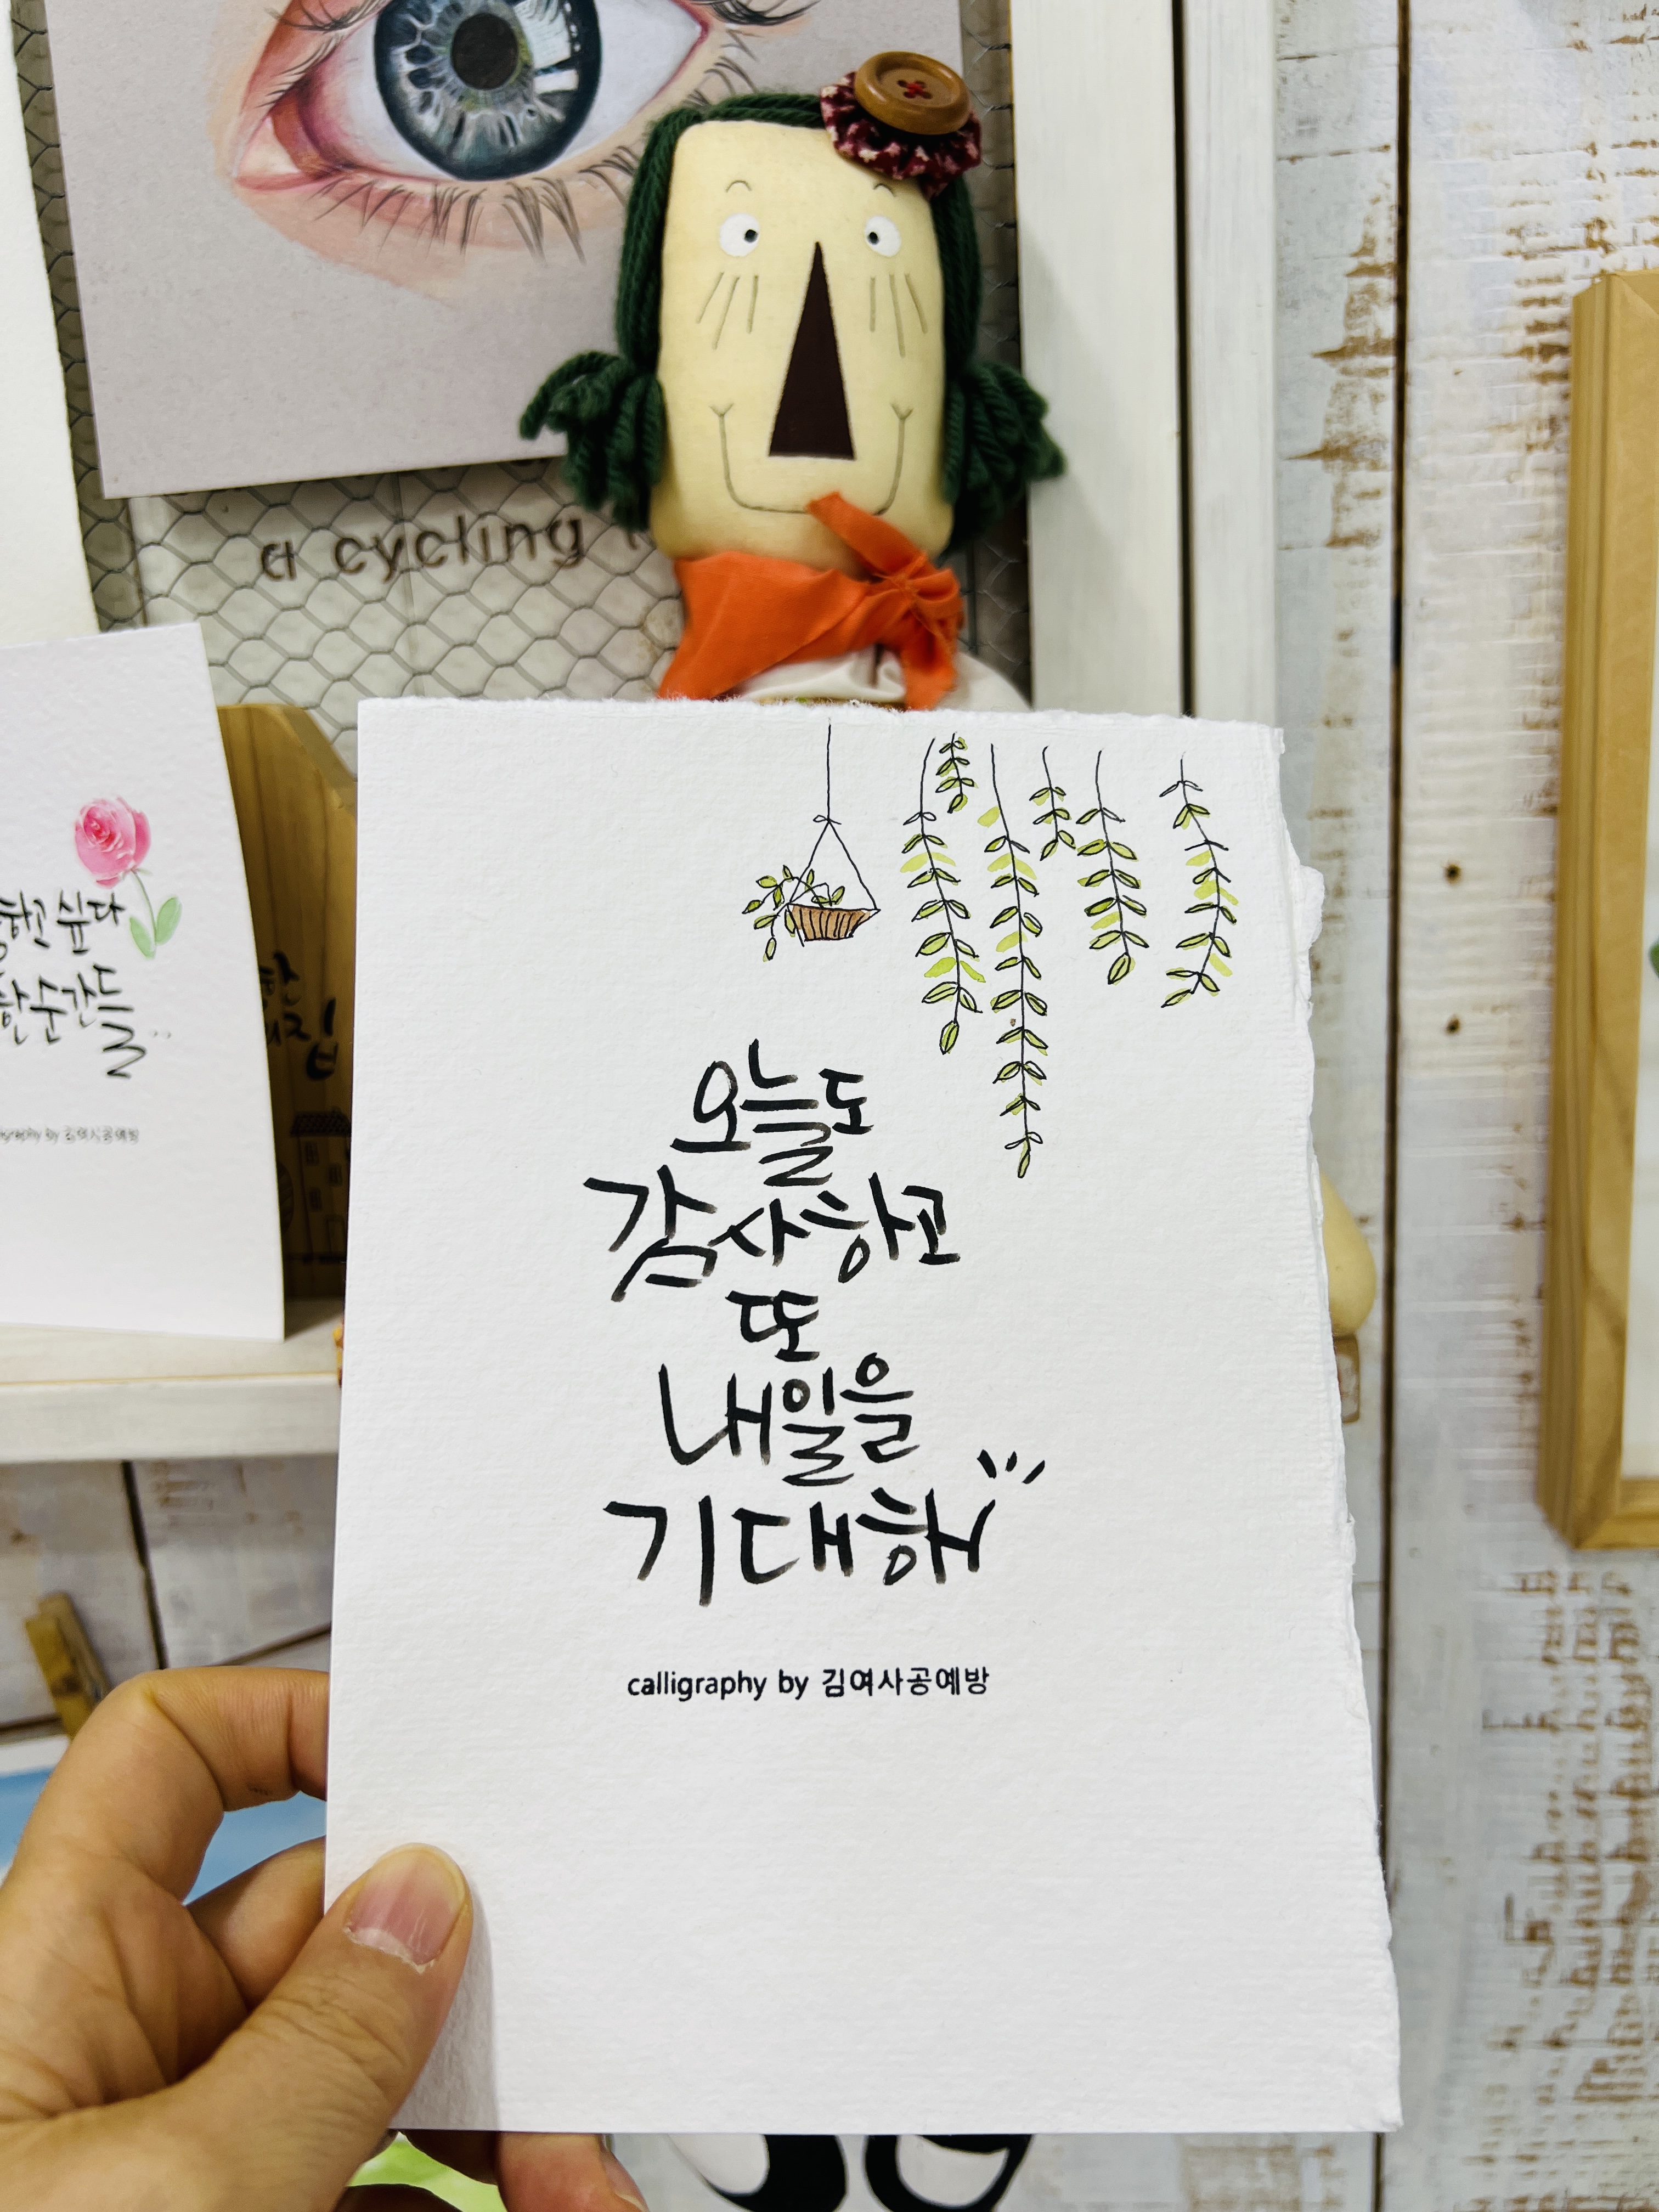 a cycling
하고 싶다
한 순간들
calligraphy by 김여사공예방
오늘도
감사하고
또
내일을
기대해
calligraphy by 김여사공예방